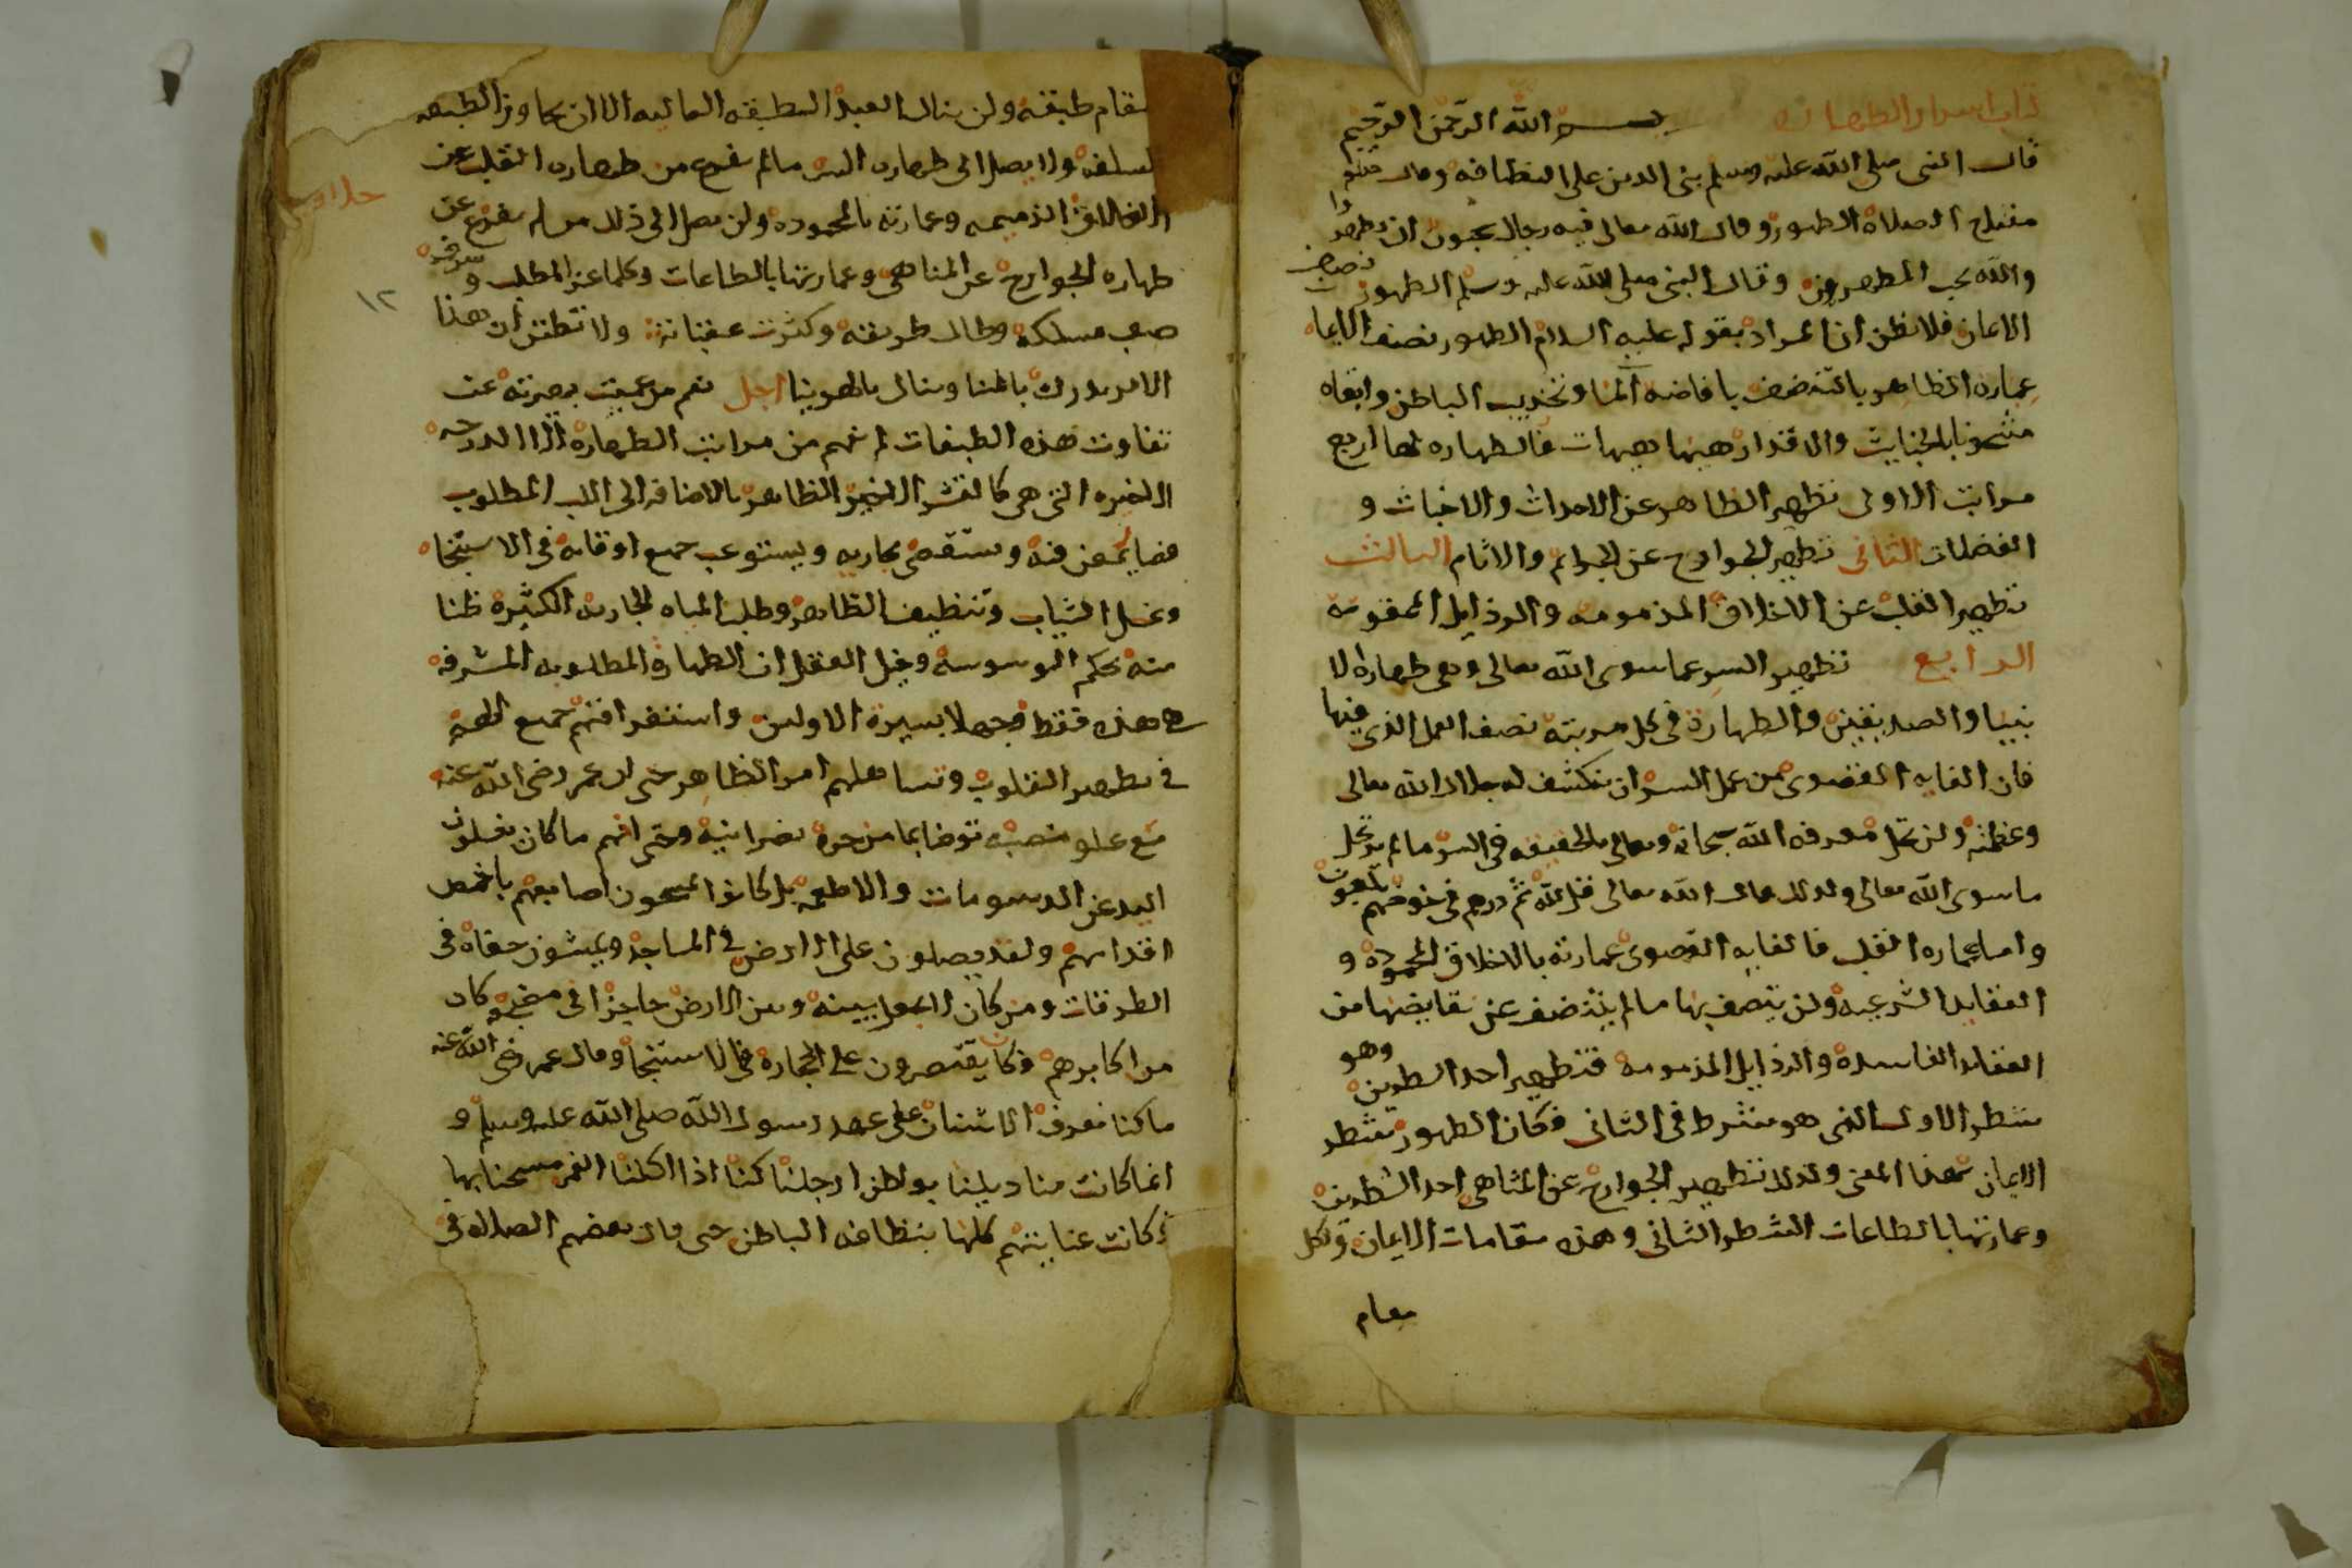 كتاب اسرار الطهارة بسم الله الرحمن الرحيم
قال النبى صلى الله عليه وسلم بنى الدين على النظافه وقال صلعم
مفتاح الصلاة الطهور وقال الله تعالى فيه رجال يحبون ان يتطهروا
والله يحب المطهرين وقال النبى صلى الله عليه وسلم الطهور نصف
الايمان فلا تظن ان المراد بقوله عليه السلام الطهور نصف الايمان
عمارة الظاهر بالتنضف بافاضه الما وتخريب الباطن وابقاه
مشحونا بالخبايث والاقذار هيهات هيهات فالطهاره لها اربع
مراتب الاولى تطهير الظاهر عن الاحداث والاخباث و
الفضلات الثانى تطهير الجوارح عن الجرايم والاثام الثالث
تطهير القلب عن الاخلاق المذمومه والرذايل الممقوته
الرابع تطهير السر عما سوى الله تعالى وهى طهارة الا
نبيا والصديقين والطهارة فى كل مرتبة نصف العمل الذى فيها
فان الغايه القصوى من عمل السر ان ينكشف له جلال الله تعالى
وعظمته ولن تحل معرفه الله سبحانه وتعالى بالحقيقه فى السر ما لم يرتحل
ما سوى الله تعالى ولذلك قال الله تعالى قل الله ثم ذرهم فى خوضهم يلعبون
واما عماره القلب فالغايه القصوى عمارته بالاخلاق المحمودة و
العقايد الشرعيه ولن يتصف بها ما لم يتنضف عن نقايضها من
العقايد الفاسدة والرذايل المذمومة فتطهير احد الشطرين وهو
شطر الاول الذى هو شرط فى الثانى فكان الطهور شطر
الايمان بهذا المعنى وكذلك تطهير الجوارح عن المناهى احد الشطرين
وعمارتها بالطاعات الشطر الثانى وهذه مقامات الايمان ولكل
مقام
مقام طبقة ولن ينال العبد الطبقه العاليه الا ان يجاوز الطبقه
السافله ولا يصل الى طهاره السر ما لم يفرغ من طهاره القلب عن
الاخلاق الذميمه وعمارته بالمحمودة ولن يصل الى ذلك من لم يفرغ عن
طهاره الجوارح عن المناهى وعمارتها بالطاعات وكلما عز المطلب وشرف
١٢
صعب مسلكه وطال طريقه وكثرت عقباته ولا تظنن ان هذا
الامر يدرك بالمنا وينال بالهوينا اجل نعم من عميت بصيرته عن
تفاوت هذه الطبقات لم يفهم من مراتب الطهارة الا الدرجه
الاخيره التى هى كالقشر الاخير الظاهر بالاضافه الى اللب المطلوب
فصار يمعن فيه ويستقصى مجاريه ويستوعب جميع اوقاته فى الاستنجاه
وغسل الثياب وتنظيف الظاهر وطلب المياه الجارية الكثيرة ظنا
منه بحكم الوسوسة وخبل العقل ان الطهارة المطلوبه المشرفه
هى هذه فقط وجهلا بسيرة الاولين واستغراقهم جميع الهمة
فى تطهير القلوب وتساهلهم امر الظاهر حتى ان عمر رضى الله عنه
مع علو منصبه توضا بما من جرة نصرانية وحتى انهم ما كان يغسلون
اليد عن الدسومات والاطعمه بل كانوا يمسحون اصابعهم باخمص
اقدامهم ولقد يصلون على الارض فى المساجد ويمشون حفاة فى
الطرقات ومن كان لا يجعل بينه وبين الارض حاجزا فى مضجعه كان
من اكابرهم وكانوا يقتصرون على الحجارة فى الاستنجا وقال عمر رضى الله عنه
ما كنا نعرف الاشنان على عهد رسول الله صلى الله عليه وسلم و
انما كانت مناديلنا بواطن ارجلنا كنا اذا اكلنا الغمر مسحنا بها
وكانت عنايتهم كلها بنظافه الباطن حتى قال بعضهم الصلاة فى